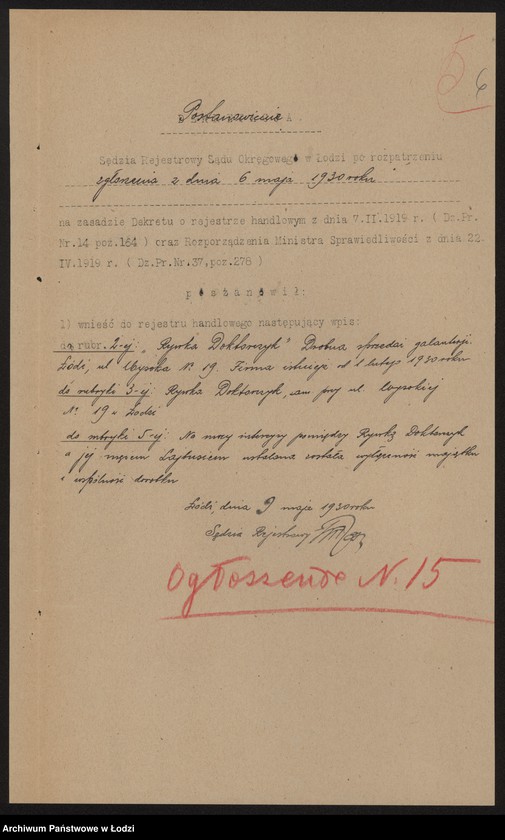 5
6
Postanowienie
Sędzia Rejestrowy Sądu Okręgowego w Łodzi po rozpatrzeniu
zgłoszenia z dnia 6 maja 1930 roku
na zasadzie Dekretu o rejestrze handlowym z dnia 7.II.1919 r. ( Dz.Pr.
Nr.14 poz.164 ) oraz Rozporządzenia Ministra Sprawiedliwości z dnia 22.
IV.1919 r. ( Dz.Pr.Nr.37,poz.278 )
p o s t a n o w i ł :
1) wnieść do rejestru handlowego następujący wpis:
do rubr. 2-ej: „Rywka Doktorczyk" Drobna sprzedaż galanterji.
Łódź, ul. Wysoka № 19. Firma istnieje od 1 lutego 1930 roku
do rubryki 3-ej: Rywka Doktorczyk, zam. przy ul. Wysokiej
№ 19 w Łodzi
do rubryki 5-ej: Na mocy intercyzy pomiędzy Rywką Doktorczyk
a jej mężem ustalona została wyłączność majątku
i wspólność dorobku
Łódź, dnia 9 maja 1930 roku
Sędzia Rejestrowy
Ogłoszenie N. 15
Archiwum Państwowe w Łodzi